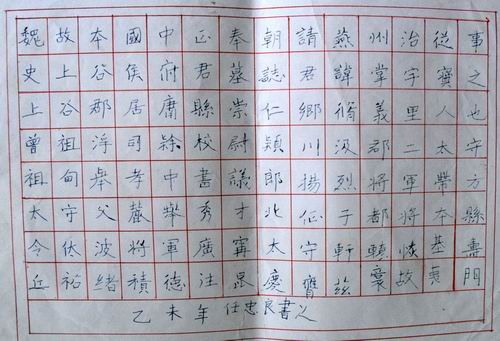 魏故本國中正奉朝請燕州治從事
史上谷侯府君墓誌君諱掌字寶之
上谷郡居庸縣崇仁鄉脩義里人也
曾祖浮司隸校尉穎川汲郡二太守
祖甸舉孝中書議郎揚烈將軍帶方
太守父麓舉秀才北征子都將本縣
令伏波將軍廣甯太守軒轅基壽
丘祐緒積德注慶膺茲故門
乙未年任忠良書之